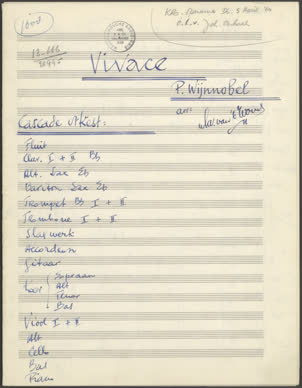 Vivace
P. Wijnnobel
arr:
Cascade orkest:
Fluit
Clar. I + II Bb
Alt. Sax Eb
Bariton Sax Eb
Trompet Bb I + II
Trombone I + II
Slagwerk
Accordeon
Gitaar
koor
Sopraan
Alt
Tenor
Bas
Viool I + II
Alt
Cello
Bas
Piano